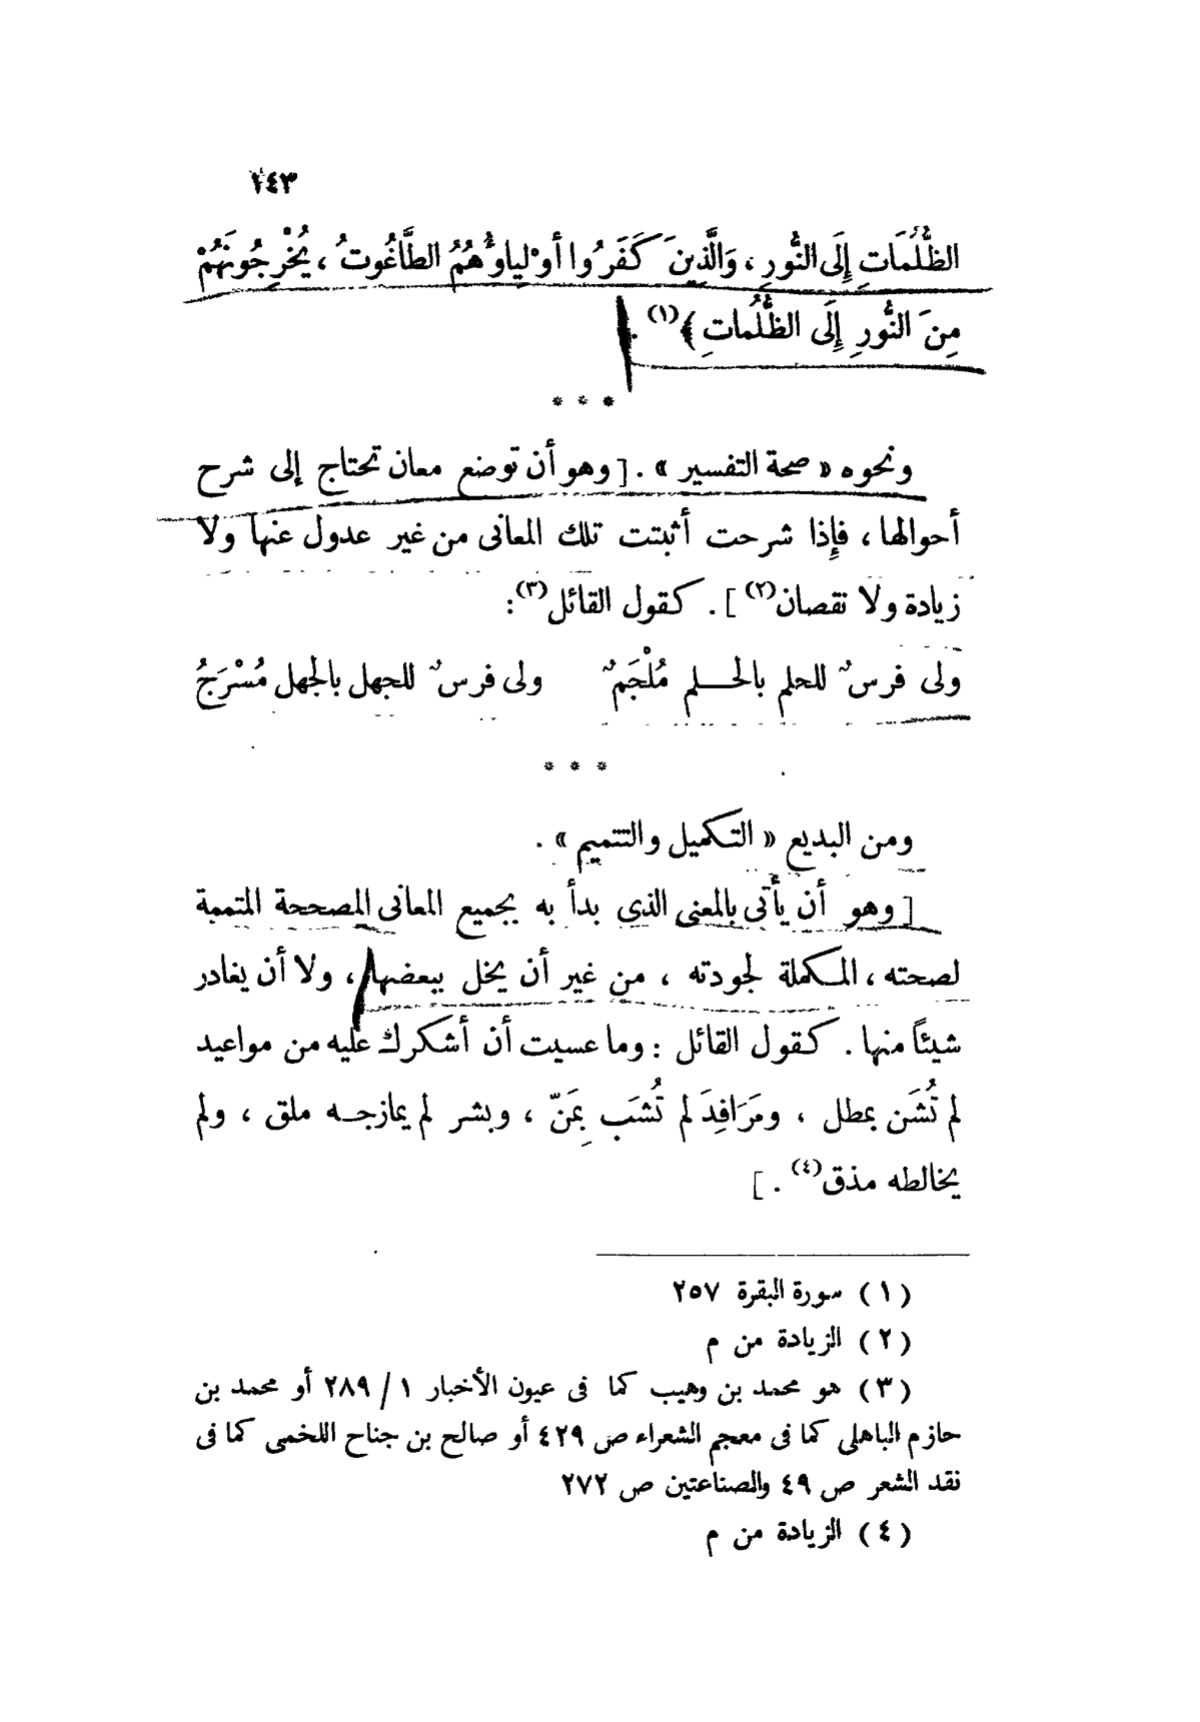 ١٤٣
الظُّلُمَاتِ إِلَى النُّورِ ، وَالَّذِينَ كَفَرُوا أَوْلِياؤُهُمُ الطَّاغُوتُ ، يُخْرِجُونَهُمْ
مِنَ النُّورِ إِلَى الظُّلُماتِ ﴾(١) .
* * *
ونحوه « صحة التفسير » . [ وهو أن توضع معان تحتاج إلى شرح
أحوالها ، فإِذا شرحت أثبتت تلك المعانى من غير عدول عنها ولا
زيادة ولا نقصان(٢) ] . كقول القائل(٣) :
ولى فرسٌ للحلم بالحـــلم مُلْجَمٌ ولى فرسٌ للجهل بالجهل مُسْرَجُ
* * *
ومن البديع « التكميل والتتميم » .
[ وهو أن يأتى بالمعنى الذى بدأ به بجميع المعانى المصححة المتممة
لصحته ، المكملة لجودته ، من غير أن يخل ببعضها ، ولا أن يغادر
شيئاً منها . كقول القائل : وما عسيت أن أشكرك عليه من مواعيد
لم تُشَن بمطل ، ومَرَافِدَ لم تُشَب بِمَنّ ، وبشر لم يمازجـه ملق ، ولم
يخالطه مذق(٤) . ]
(١) سورة البقرة ٢٥٧
(٢) الزيادة من م
(٣) هو محمد بن وهيب كما فى عيون الأخبار ١ / ٢٨٩ أو محمد بن
حازم الباهلى كما فى معجم الشعراء ص ٤٢٩ أو صالح بن جناح اللخمى كما فى
نقد الشعر ص ٤٩ والصناعتين ص ٢٧٢
(٤) الزيادة من م